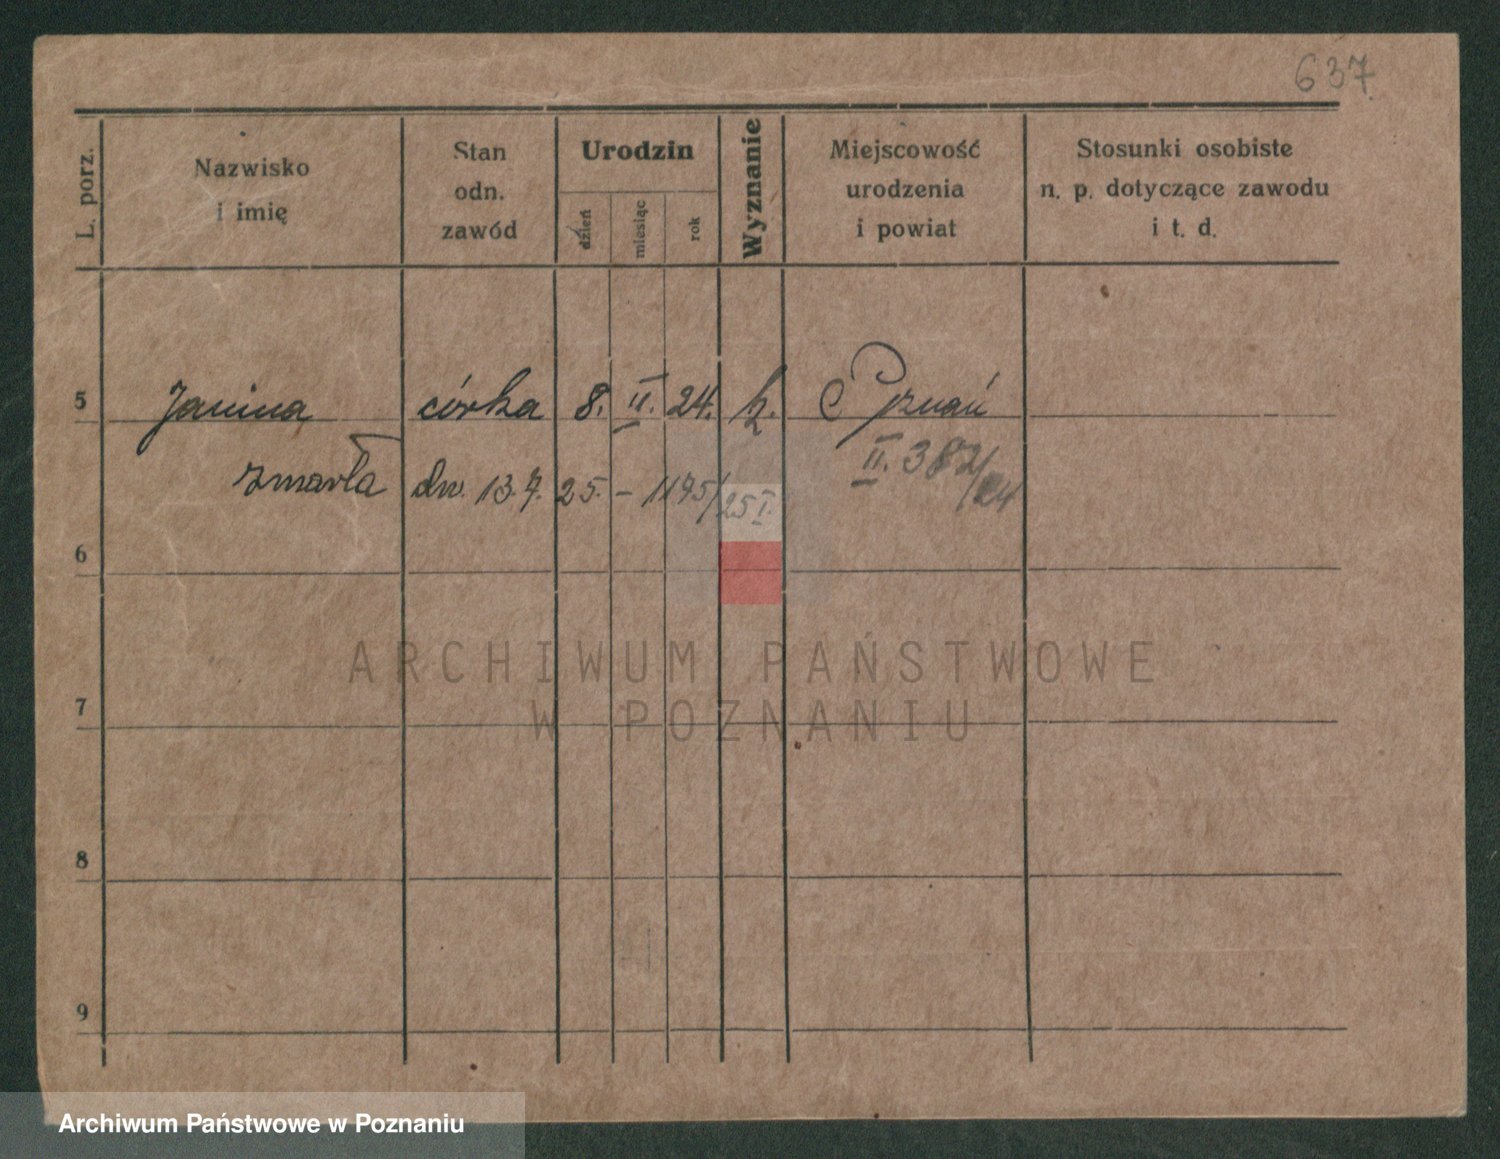 637.
L. porz.
Nazwisko
i imię
Stan
odn.
zawód
Urodzin
dzień
miesiąc
rok
Wyznanie
Miejscowość
urodzenia
i powiat
Stosunki osobiste
n. p. dotyczące zawodu
i t. d.
5 Janina córka 8. II. 24. k. Poznań
II. 382/24
zmarła dn. 13.7.25. – 1195/25 I.
6
ARCHIWUM PAŃSTWOWE
W POZNANIU
7
8
9
Archiwum Państwowe w Poznaniu